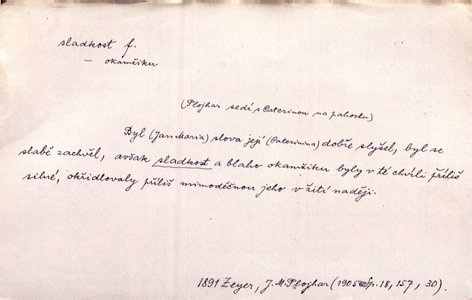 sladkost f.
– okamžiku
(Plojhar sedí s Caterinou na pahorku)
Byl (Jan Maria) slova její (Caterinina) dobře slyšel, byl se
slabě zachvěl, avšak sladkost a blaho okamžiku byly v té chvíli příliš
silné, okřídlovaly příliš mimoděčnou jeho v žití naději.
1891 Zeyer, J. M. Plojhar (1905 Sp. 18, 157, 30).